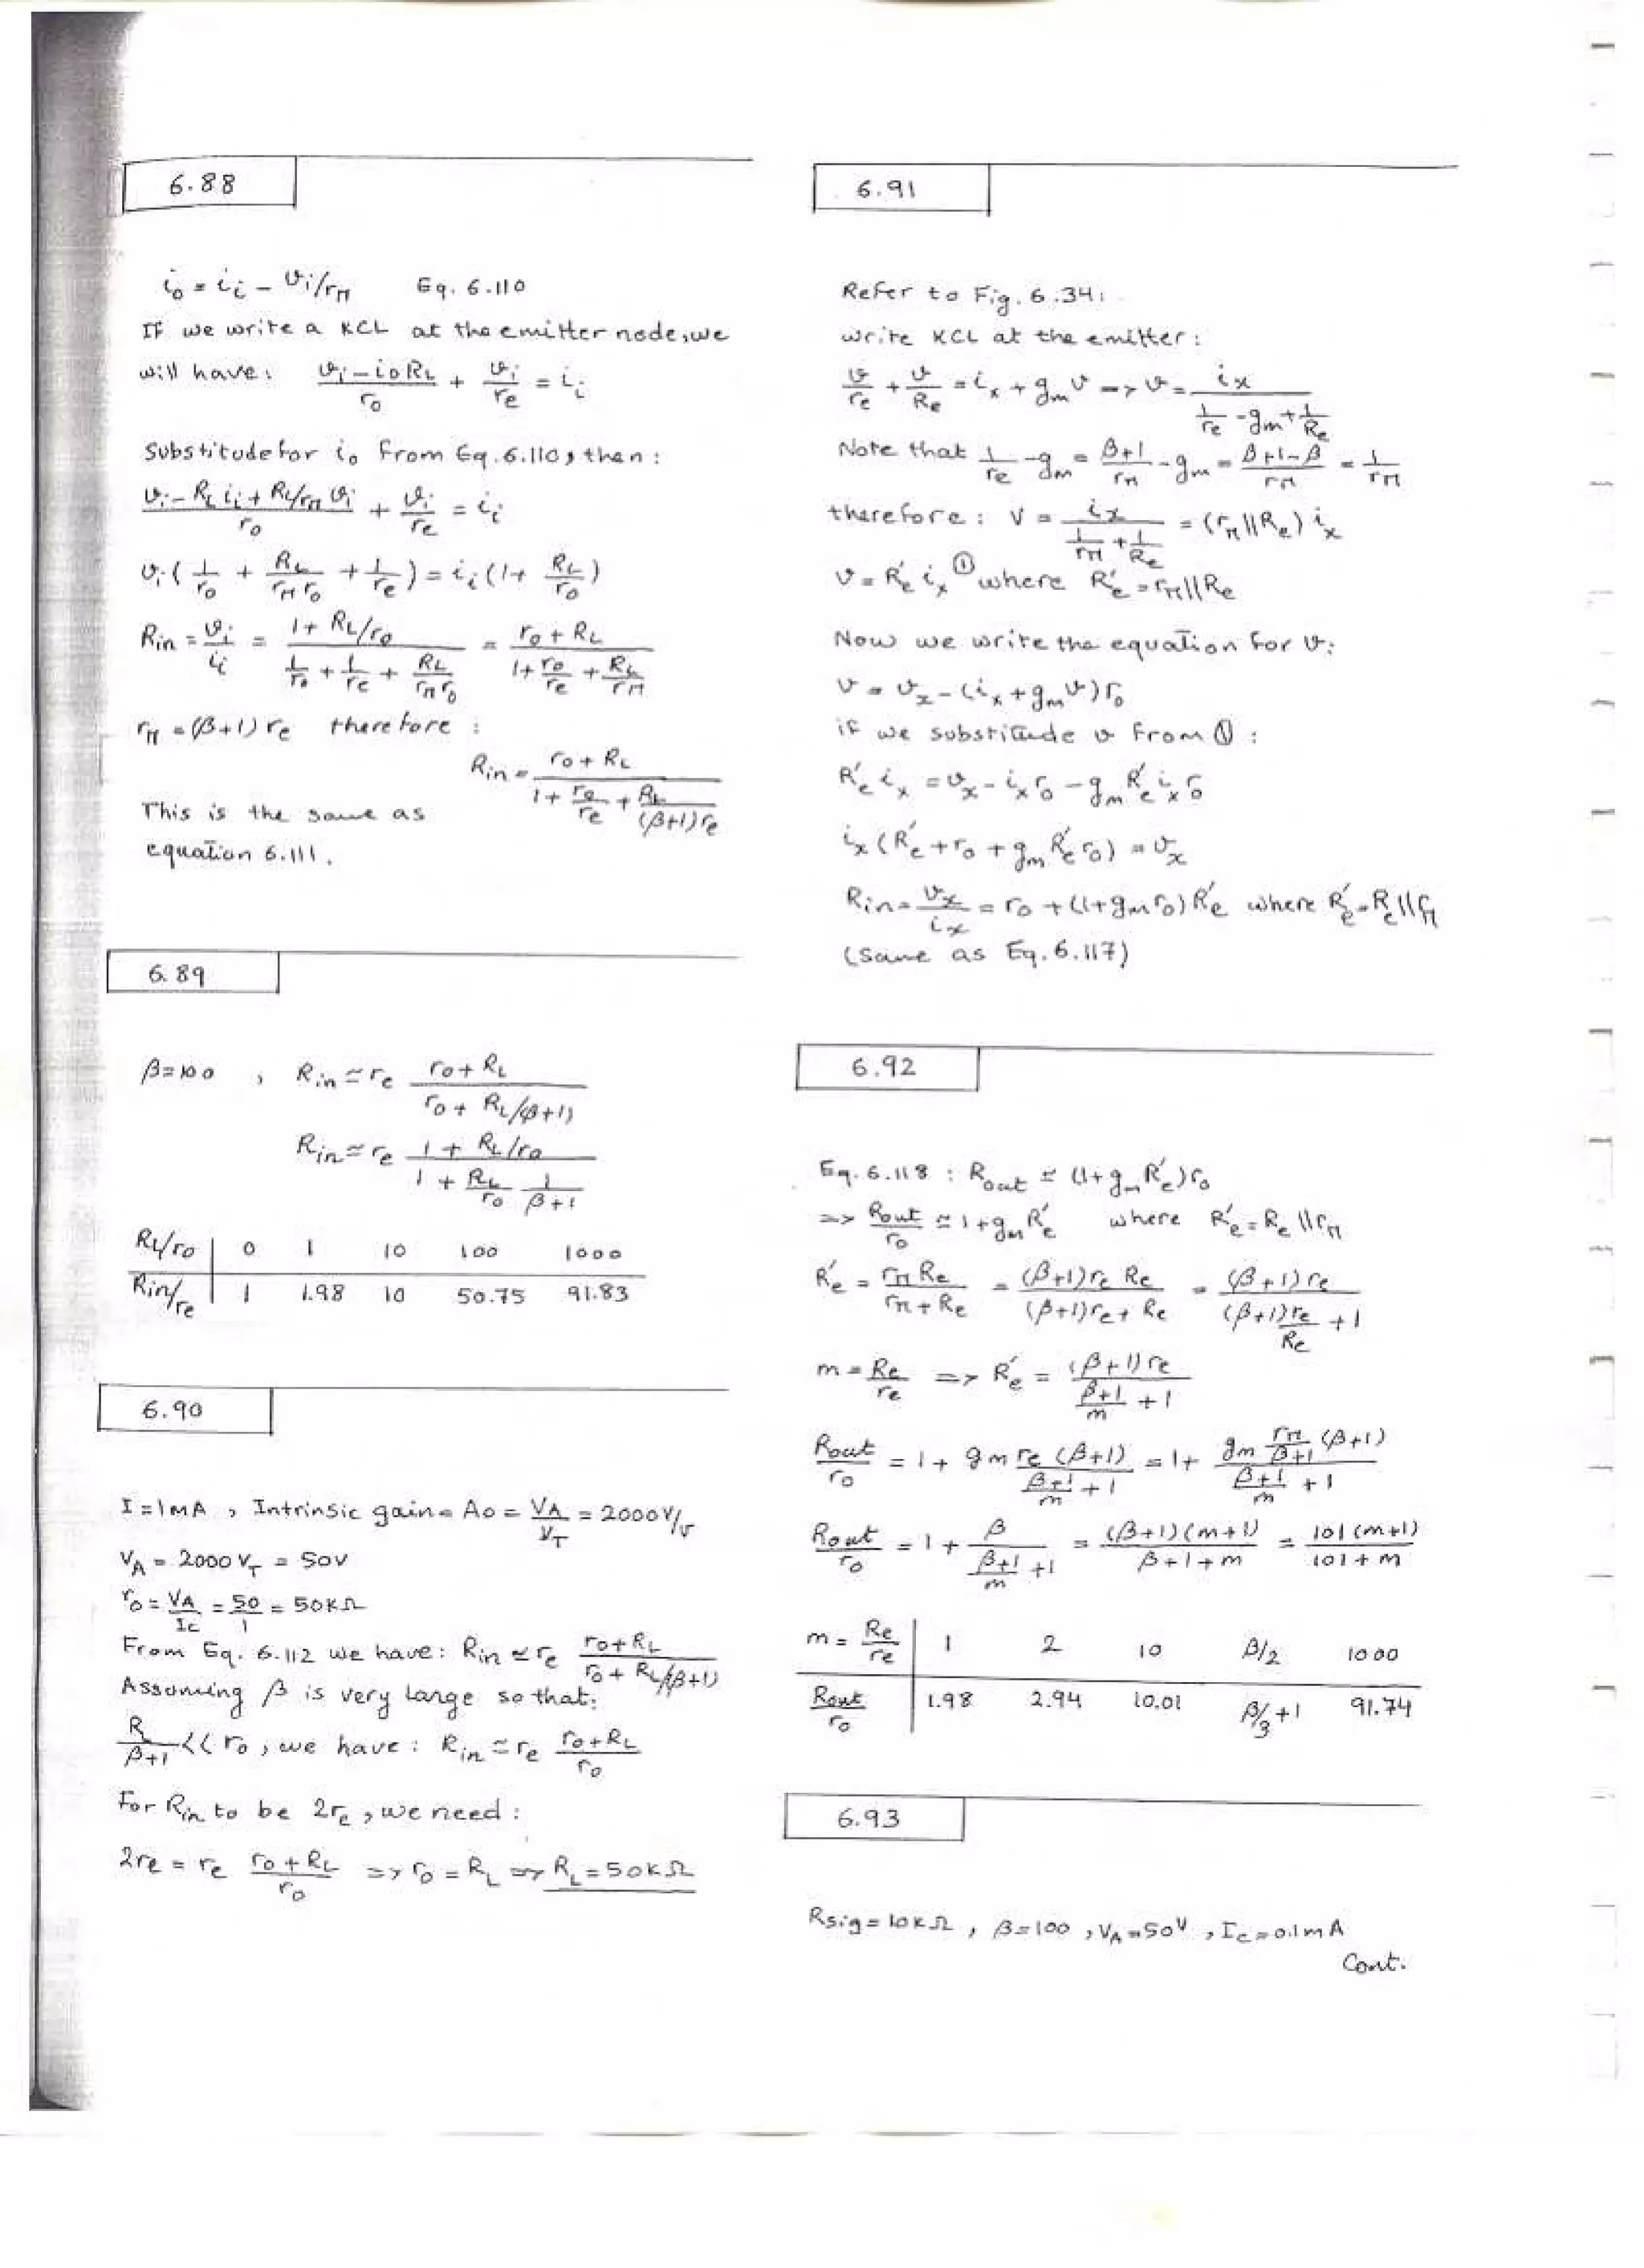 6.88
i₀ = iᵢ - vᵢ/rπ Eq. 6.110
If we write a KCL at the emitter node, we
will have: (vᵢ - i₀R_L)/r₀ + vᵢ/rₑ = iᵢ
Substitude for i₀ From Eq. 6.110, then:
(vᵢ - R_L iᵢ + R_L/rπ vᵢ)/r₀ + vᵢ/rₑ = iᵢ
vᵢ(1/r₀ + R_L/(rπ r₀) + 1/rₑ) = iᵢ(1 + R_L/r₀)
Rin = vᵢ/iᵢ = (1 + R_L/r₀)/(1/r₀ + 1/rₑ + R_L/(rπ r₀)) = (r₀ + R_L)/(1 + r₀/rₑ + R_L/rπ)
rπ = (β+1) rₑ therefore :
Rin = (r₀ + R_L)/(1 + r₀/rₑ + R_L/((β+1)rₑ))
This is the same as
equation 6.111.
6.89
β = 100 , Rin ≃ rₑ (r₀ + R_L)/(r₀ + R_L/(β+1))
Rin ≃ rₑ (1 + R_L/r₀)/(1 + R_L/r₀ 1/(β+1))
R_L/r₀ | 0 1 10 100 1000
Rin/rₑ | 1 1.98 10 50.75 91.83
6.90
I = 1mA , Intrinsic gain = A₀ = V_A/V_T = 2000 V/V
V_A = 2000 V_T = 50V
r₀ = V_A/I_C = 50/1 = 50KΩ
From Eq. 6.112 we have: Rin ≃ rₑ (r₀+R_L)/(r₀ + R_L/(β+1))
Assuming β is very large so that:
R/(β+1) << r₀ , we have : Rin ≃ rₑ (r₀+R_L)/r₀
For Rin to be 2rₑ , we need :
2rₑ = rₑ (r₀ + R_L)/r₀ => r₀ = R_L => R_L = 50KΩ
6.91
Refer to Fig. 6.34:
write KCL at the emitter :
v/rₑ + v/Rₑ = iₓ + gₘv => v = iₓ/(1/rₑ - gₘ + 1/Rₑ)
Note that 1/rₑ - gₘ = (β+1)/rπ - gₘ = (β+1-β)/rπ = 1/rπ
therefore : V = iₓ/(1/rπ + 1/Rₑ) = (rπ||Rₑ) iₓ
v = R'ₑ iₓ ① where R'ₑ = rπ||Rₑ
Now we write the equation for v:
v = vₓ - (iₓ + gₘv) r₀
if we substitude v From ① :
R'ₑ iₓ = vₓ - iₓ r₀ - gₘ R'ₑ iₓ r₀
iₓ (R'ₑ + r₀ + gₘ R'ₑ r₀) = vₓ
Rin = vₓ/iₓ = r₀ + (1+gₘr₀) R'ₑ where R'ₑ = Rₑ||rπ
(Same as Eq. 6.117)
6.92
Eq. 6.118 : Rout ≃ (1+gₘR'ₑ)r₀
=> Rout/r₀ ≃ 1+gₘR'ₑ where R'ₑ = Rₑ||rπ
R'ₑ = rπRₑ/(rπ+Rₑ) = (β+1)rₑRₑ/((β+1)rₑ+Rₑ) = (β+1)rₑ/((β+1)rₑ/Rₑ + 1)
m = Rₑ/rₑ => R'ₑ = (β+1)rₑ/((β+1)/m + 1)
Rout/r₀ = 1 + gₘrₑ(β+1)/((β+1)/m + 1) = 1 + gₘ rπ/(β+1) (β+1)/((β+1)/m + 1)
Rout/r₀ = 1 + β/((β+1)/m + 1) = (β+1)(m+1)/(β+1+m) = 101(m+1)/(101+m)
m = Rₑ/rₑ | 1 2 10 β/2 1000
Rout/r₀ | 1.98 2.94 10.01 β/3+1 91.74
6.93
Rsig = 10KΩ , β=100 , V_A = 50V , I_C = 0.1mA
Cont.